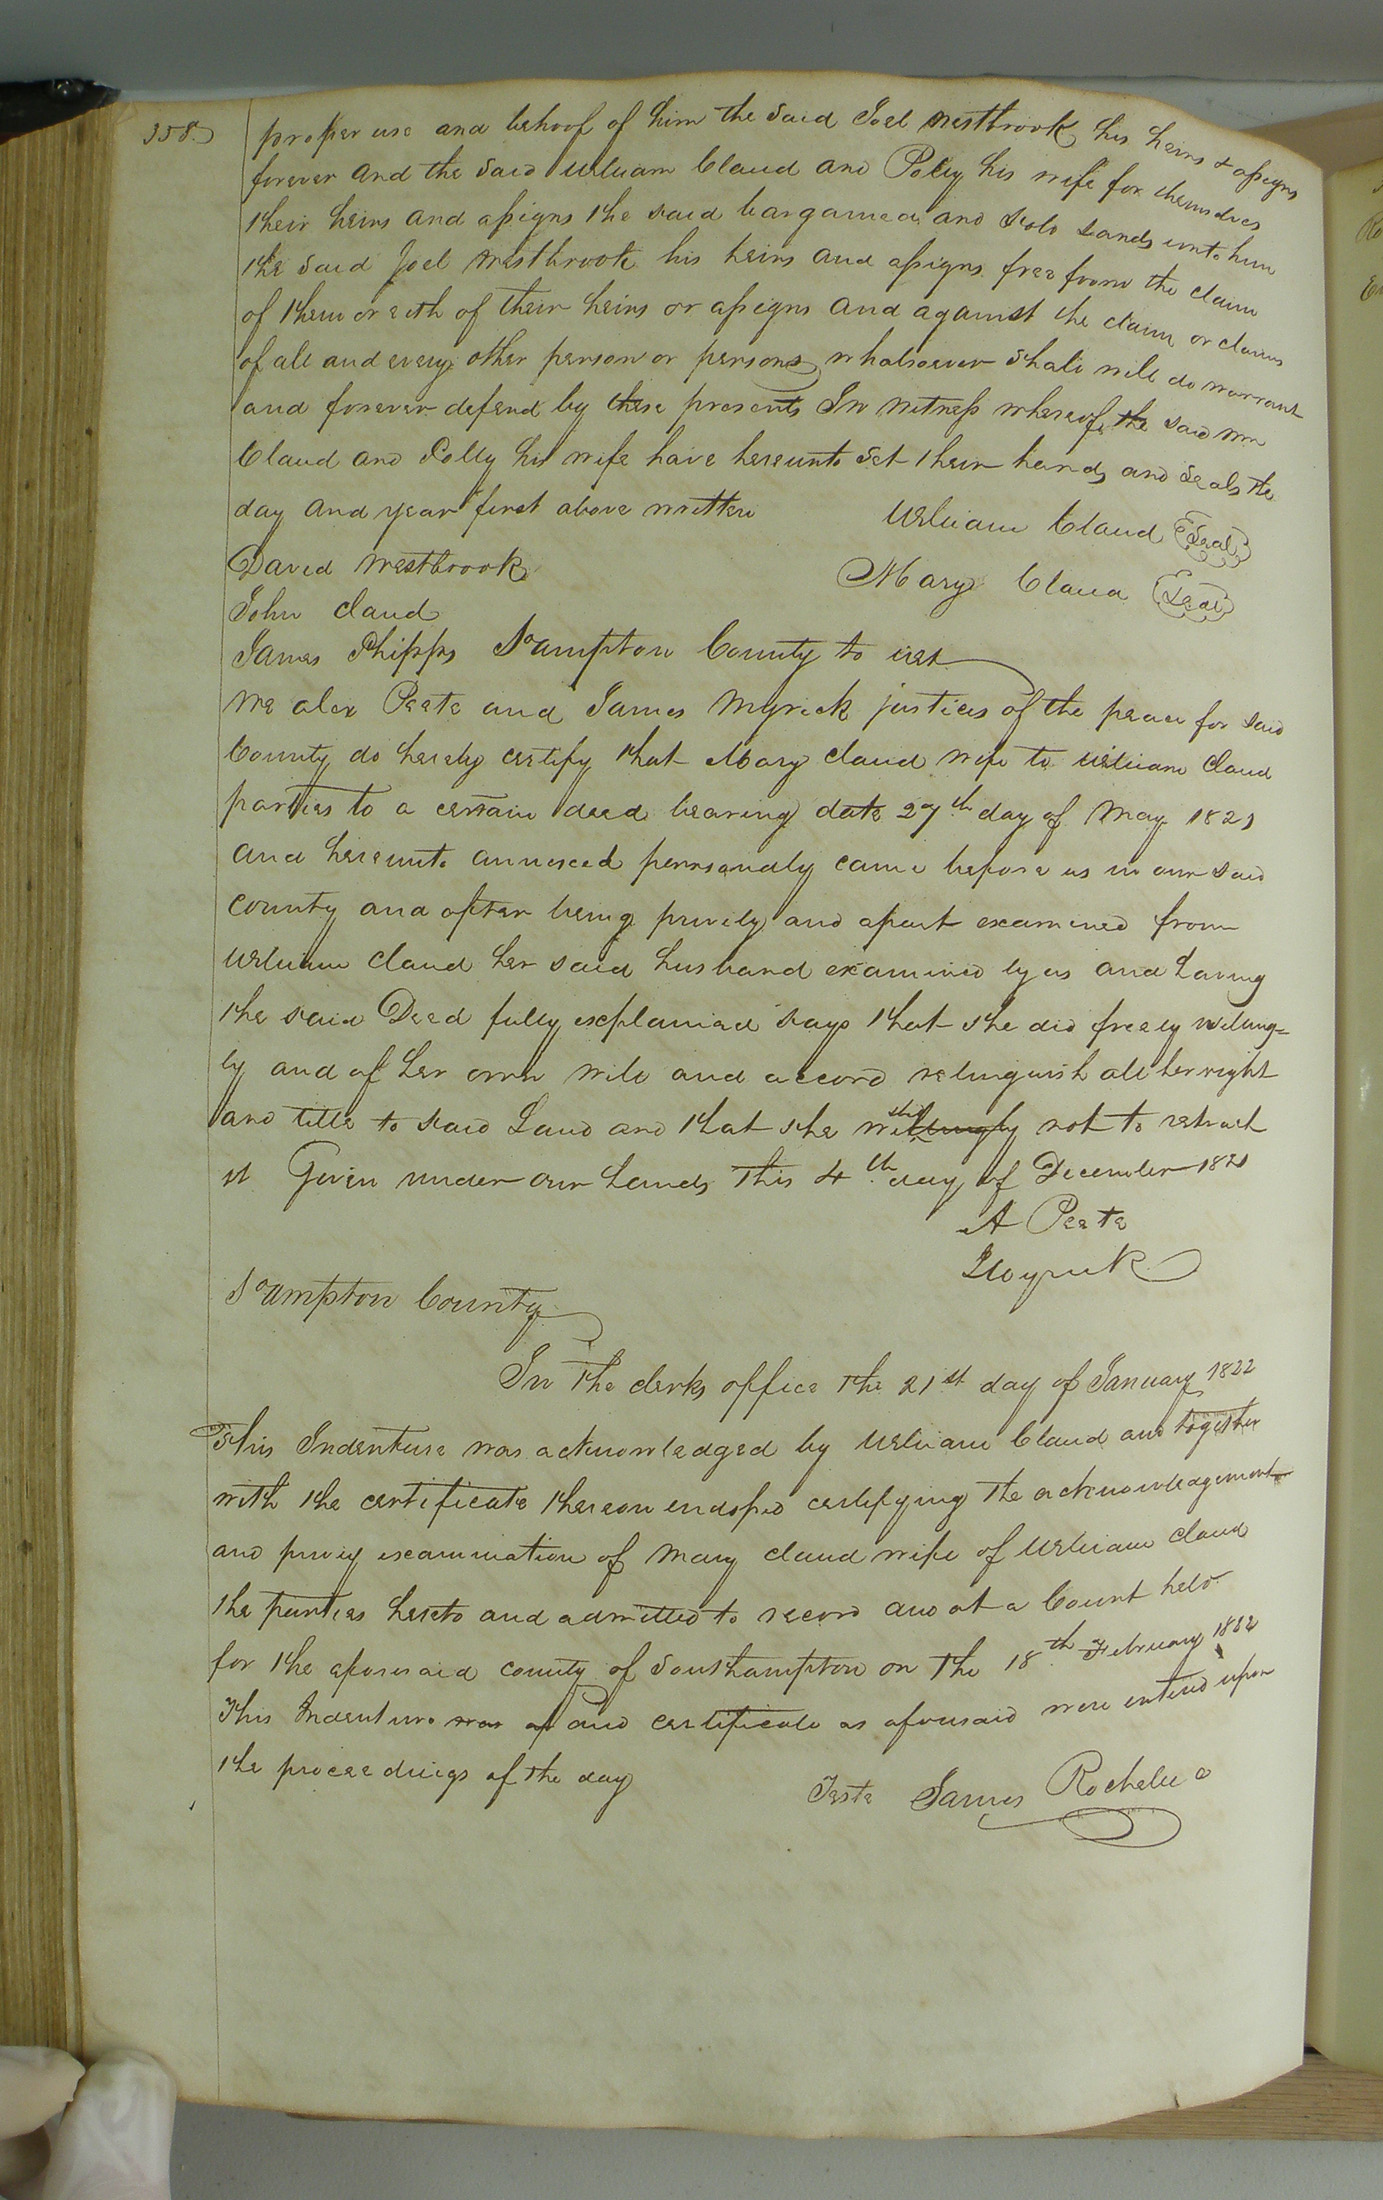 358.
proper use and behoof of him the said Joel Westbrook his heirs & assigns
forever and the said William Claud and Polly his wife for themselves
their heirs and assigns the said bargained and sold Lands unto him
the said Joel Westbrook his heirs and assigns free from the claim
of them or eith of their heirs or assigns and against the claim or claims
of all and every other person or persons whatsoever shall will do warrant
and forever defend by these presents In witness whereof the said Wm
Claud and Polly his wife have hereunto set their hands and seals the
day and year first above written
William Claud Seal
David Westbrook
Mary Claud Seal
John Claud
James Phipps So ampton County to wit
We alex Peete and James Myrick justices of the peace for said
County do hereby certify that Mary Claud wife to William Claud
parties to a certain deed bearing date 27th day of May 1821
and hereunto annexed personally came before us in our said
County and after being privily and apart examined from
William Claud her said husband examined by us and having
the said Deed fully explained says that she did freely willing=
ly and of her own will and accord relinquish all her right
and title to said Land and that she willingly wished not to retract
it Given under our hands this 4th day of December 1821
A Peete
J Myrick
So ampton County
In the clerks office the 21st day of January 1822
This Indenture was acknowledged by William Claud and together
with the certificate thereon endorsed certifying the acknowledgement
and privy examination of Mary Claud wife of William Claud
the parties hereto and admitted to record and at a Court held
for the aforesaid county of Southampton on the 18th February 1822
This Indenture was and certificate as aforesaid were entered upon
the proceedings of the day
Teste James Rochelle